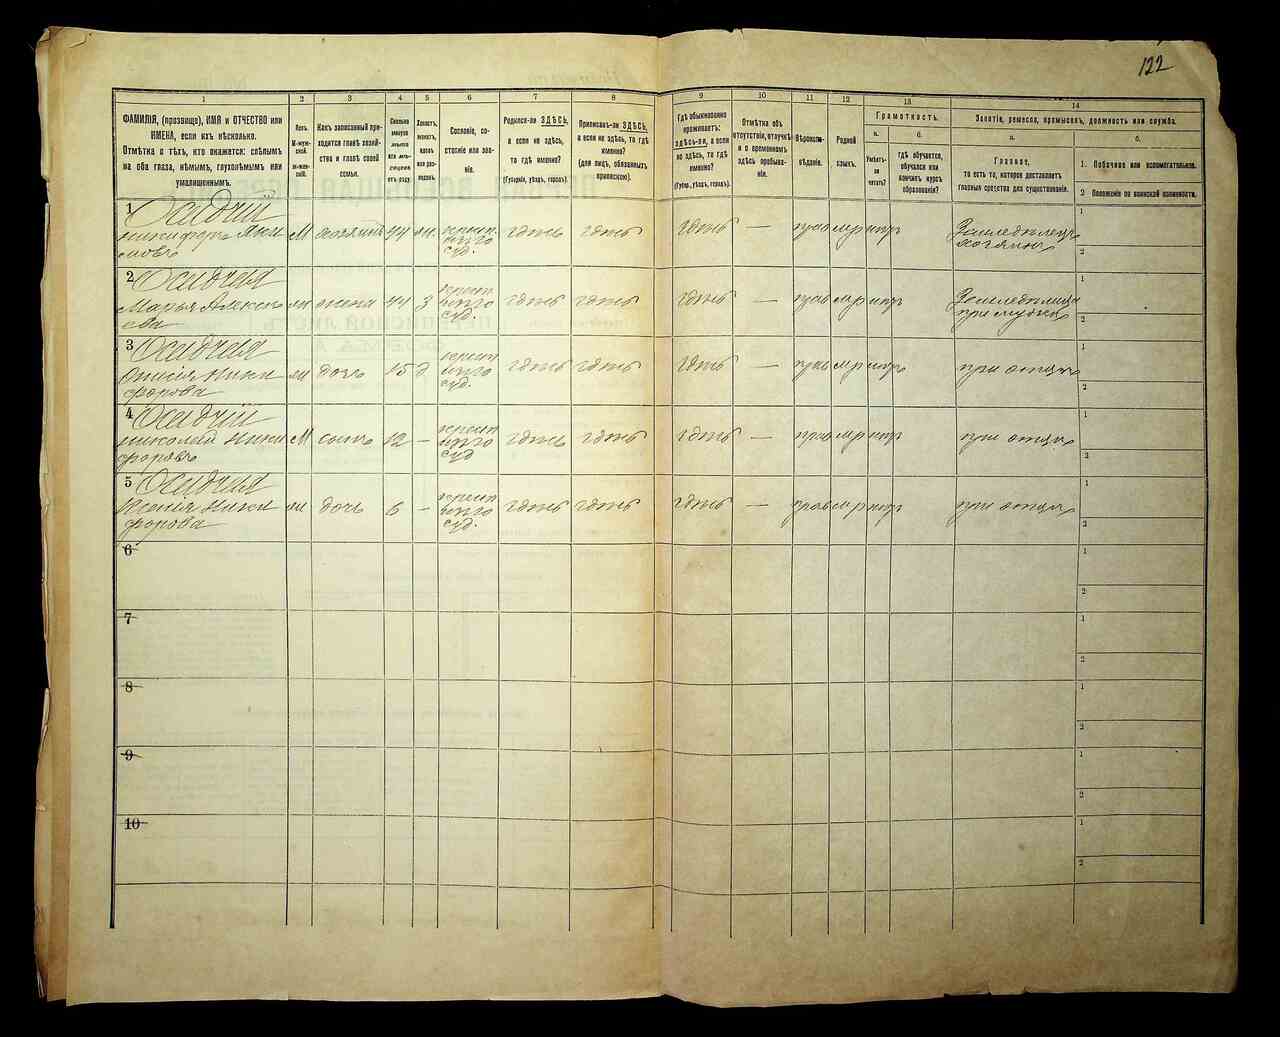 122
1
2
3
4
5
6
7
8
9
10
11
12
13
14
ФАМИЛІЯ, (прозвище), ИМЯ и ОТЧЕСТВО или
ИМЕНА, если ихъ нѣсколько.
Отмѣтка о тѣхъ, кто окажется: слѣпымъ
на оба глаза, нѣмымъ, глухонѣмымъ или
умалишеннымъ.
Полъ.
М-муж-
ской.
Ж-жен-
скій.
Какъ записанный при-
ходится главѣ хозяй-
ства и главѣ своей
семьи.
Сколько
минуло
лѣтъ
Холостъ,
женатъ,
вдовъ
или раз-
веденъ.
Сословіе, со-
стояніе или зва-
ніе.
Родился-ли ЗДѢСЬ,
а если не здѣсь,
то гдѣ именно?
(Губернія, уѣздъ, городъ).
Приписанъ-ли ЗДѢСЬ,
а если не здѣсь, то гдѣ
именно?
(для лицъ, обязанныхъ
припискою).
Гдѣ обыкновенно
проживаетъ:
ЗДѢСЬ-ли, а если
не здѣсь, то гдѣ
именно?
(Губер., уѣздъ, городъ).
Отмѣтка объ
отсутствіи, отлучкѣ
и о временномъ
здѣсь пребыва-
ніи.
Вѣроиспо-
вѣданіе.
Родной
языкъ.
Грамотность.
а.
Умѣетъ-
ли
читать?
б.
гдѣ обучается,
обучался или
кончилъ курсъ
образованія?
Занятіе, ремесло, промыселъ, должность или служба.
а.
Главное,
то есть то, которое доставляетъ
главныя средства для существованія.
б.
1. Побочное или вспомогательное.
2 Положеніе по воинской повинности.
1 Осадчій
Никифоръ Яки
мовъ
М хозяинъ 44 здѣсь здѣсь здѣсь — прав мр нтр Земледѣлецъ
хозяинъ
1
2
2 Осадчая
Марья Алексѣ
ева
ж жена 44 з здѣсь здѣсь здѣсь — прав мр нтр Земледѣлица
при мужѣ
1
2
3 Осадчая
Ники
форова
ж дочь 15 д здѣсь здѣсь здѣсь прав мр нтр при отцѣ
1
2
4 Осадчій
Николай Ники
форовъ
М сынъ 12 — здѣсь здѣсь здѣсь — прав мр нтр при отцѣ
1
2
5 Осадчая
Ксенія Ники
форова
ж дочь 6 — здѣсь здѣсь здѣсь — прав мр нтр при отцѣ
1
2
6
1
2
7
1
2
8
1
2
9
1
2
10
1
2